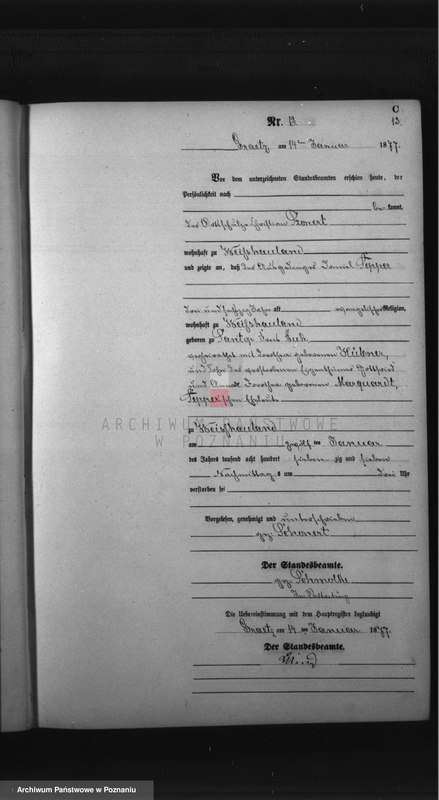 C
Nr. 13. 13.
Graetz am 14ten Januar 1877.
Vor dem unterzeichneten Standesbeamten erschien heute, der
Persönlichkeit nach
bekannt,
der
wohnhaft zu Weißhauland
und zeigte an, daß der Ausgedinger Daniel Tepper
drei und sechzig Jahr alt evangelischer Religion,
wohnhaft zu Weißhauland
geboren zu
verheirathet mit Dorothea geborenen Hübner,
und Sohn der verstorbenen Eigenthümer Gottfried
und Dorothea geborenen Marquardt,
Tepper'schen Eheleute
zu Weißhauland
am zwölf ten Januar
des Jahres tausend acht hundert sieben zig und sieben
Nachmittags um drei Uhr
verstorben sei
Vorgelesen, genehmigt und unterschrieben
gez. Schonert
Der Standesbeamte.
gez. Schmolke
In Vertretung
Die Uebereinstimmung mit dem Hauptregister beglaubigt
Graetz am 14 ten Januar 1877.
Der Standesbeamte.
ARCHIWUM PAŃSTWOWE
W POZNANIU
Archiwum Państwowe w Poznaniu